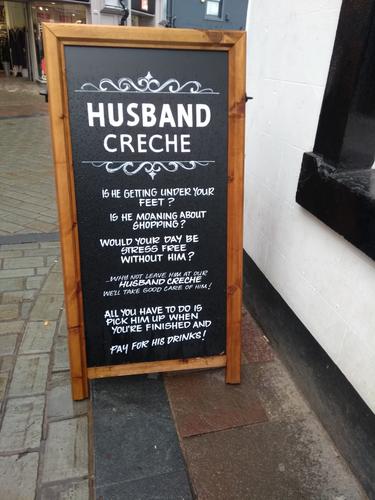 HUSBAND
CRECHE
IS HE GETTING UNDER YOUR
FEET?
IS HE MOANING ABOUT
SHOPPING?
WOULD YOUR DAY BE
STRESS FREE
WITHOUT HIM?
...WHY NOT LEAVE HIM AT OUR
HUSBAND CRECHE
WE'LL TAKE GOOD CARE OF HIM!
ALL YOU HAVE TO DO IS
PICK HIM UP WHEN
YOU'RE FINISHED AND
PAY FOR HIS DRINKS!